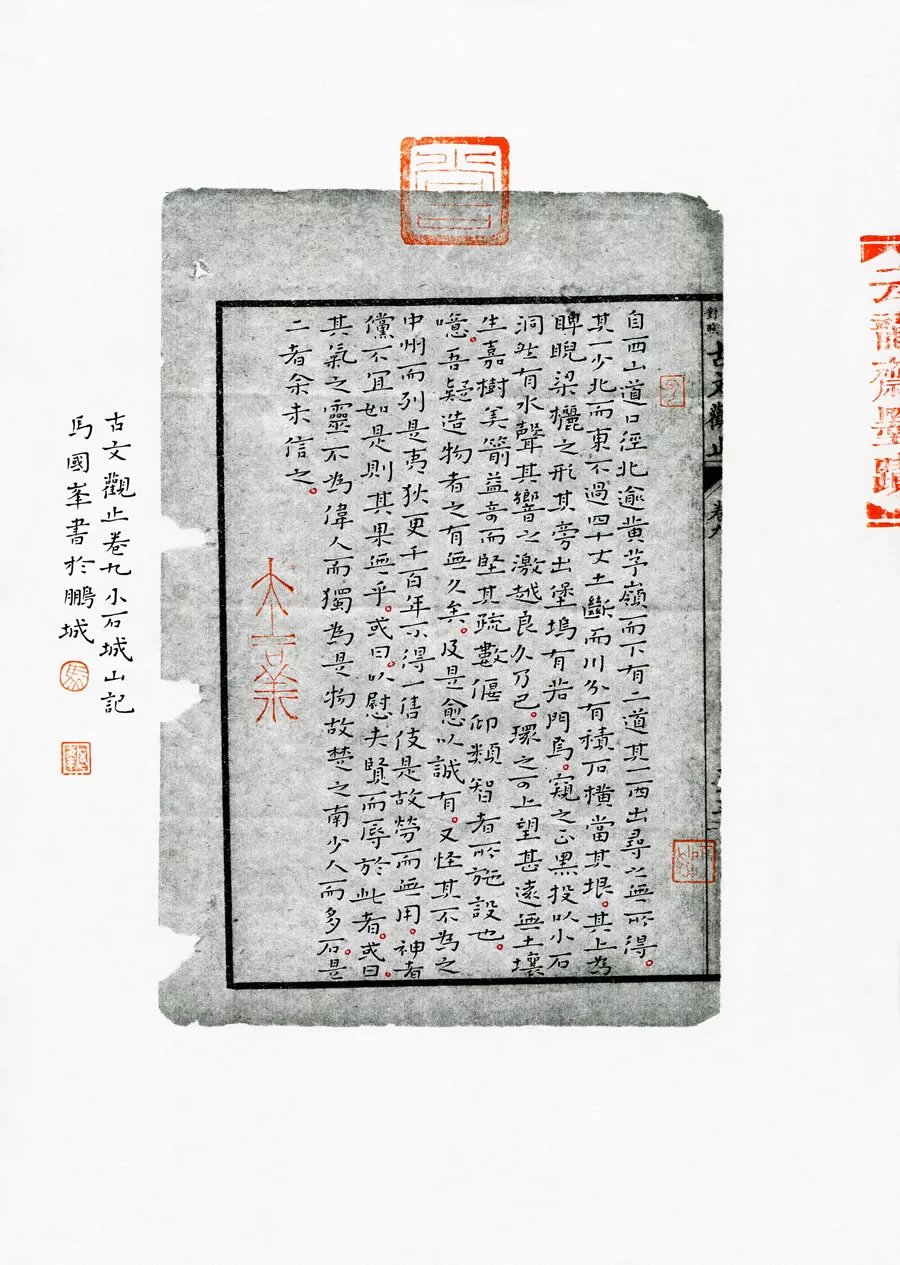 元龍齋墨蹟
對照古文觀止
卷九
自西山道口徑北逾黃茅嶺而下有二道其一西出尋之無所得。
其一少北而東不過四十丈土斷而川分有積石橫當其垠。其上為
睥睨梁欐之形其旁出堡塢有若門焉。窺之正黑投以小石
洞然有水聲其響之激越良久乃已。環之可上望甚遠無土壤
生嘉樹美箭益奇而堅其疏數偃仰類智者所施設也。
噫。吾疑造物者之有無久矣。及是愈以誠有。又怪其不為之
中州而列是夷狄更千百年不得一售伎是故勞而無用。神者
儻不宜如是則其果無乎。或曰。以慰夫賢而辱於此者。或曰
其氣之靈不為偉人而獨為是物故楚之南少人而多石。是
二者余未信之。
古文觀止卷九小石城山記
馬國峯書於鵬城